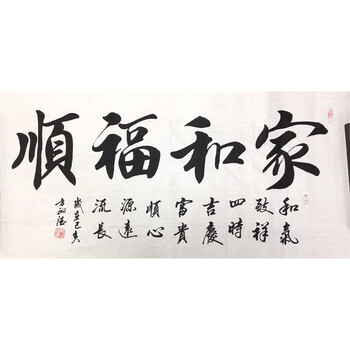 家和福順
和氣
致祥
四時
吉慶
富貴
順心
源遠
流長
歲在己亥